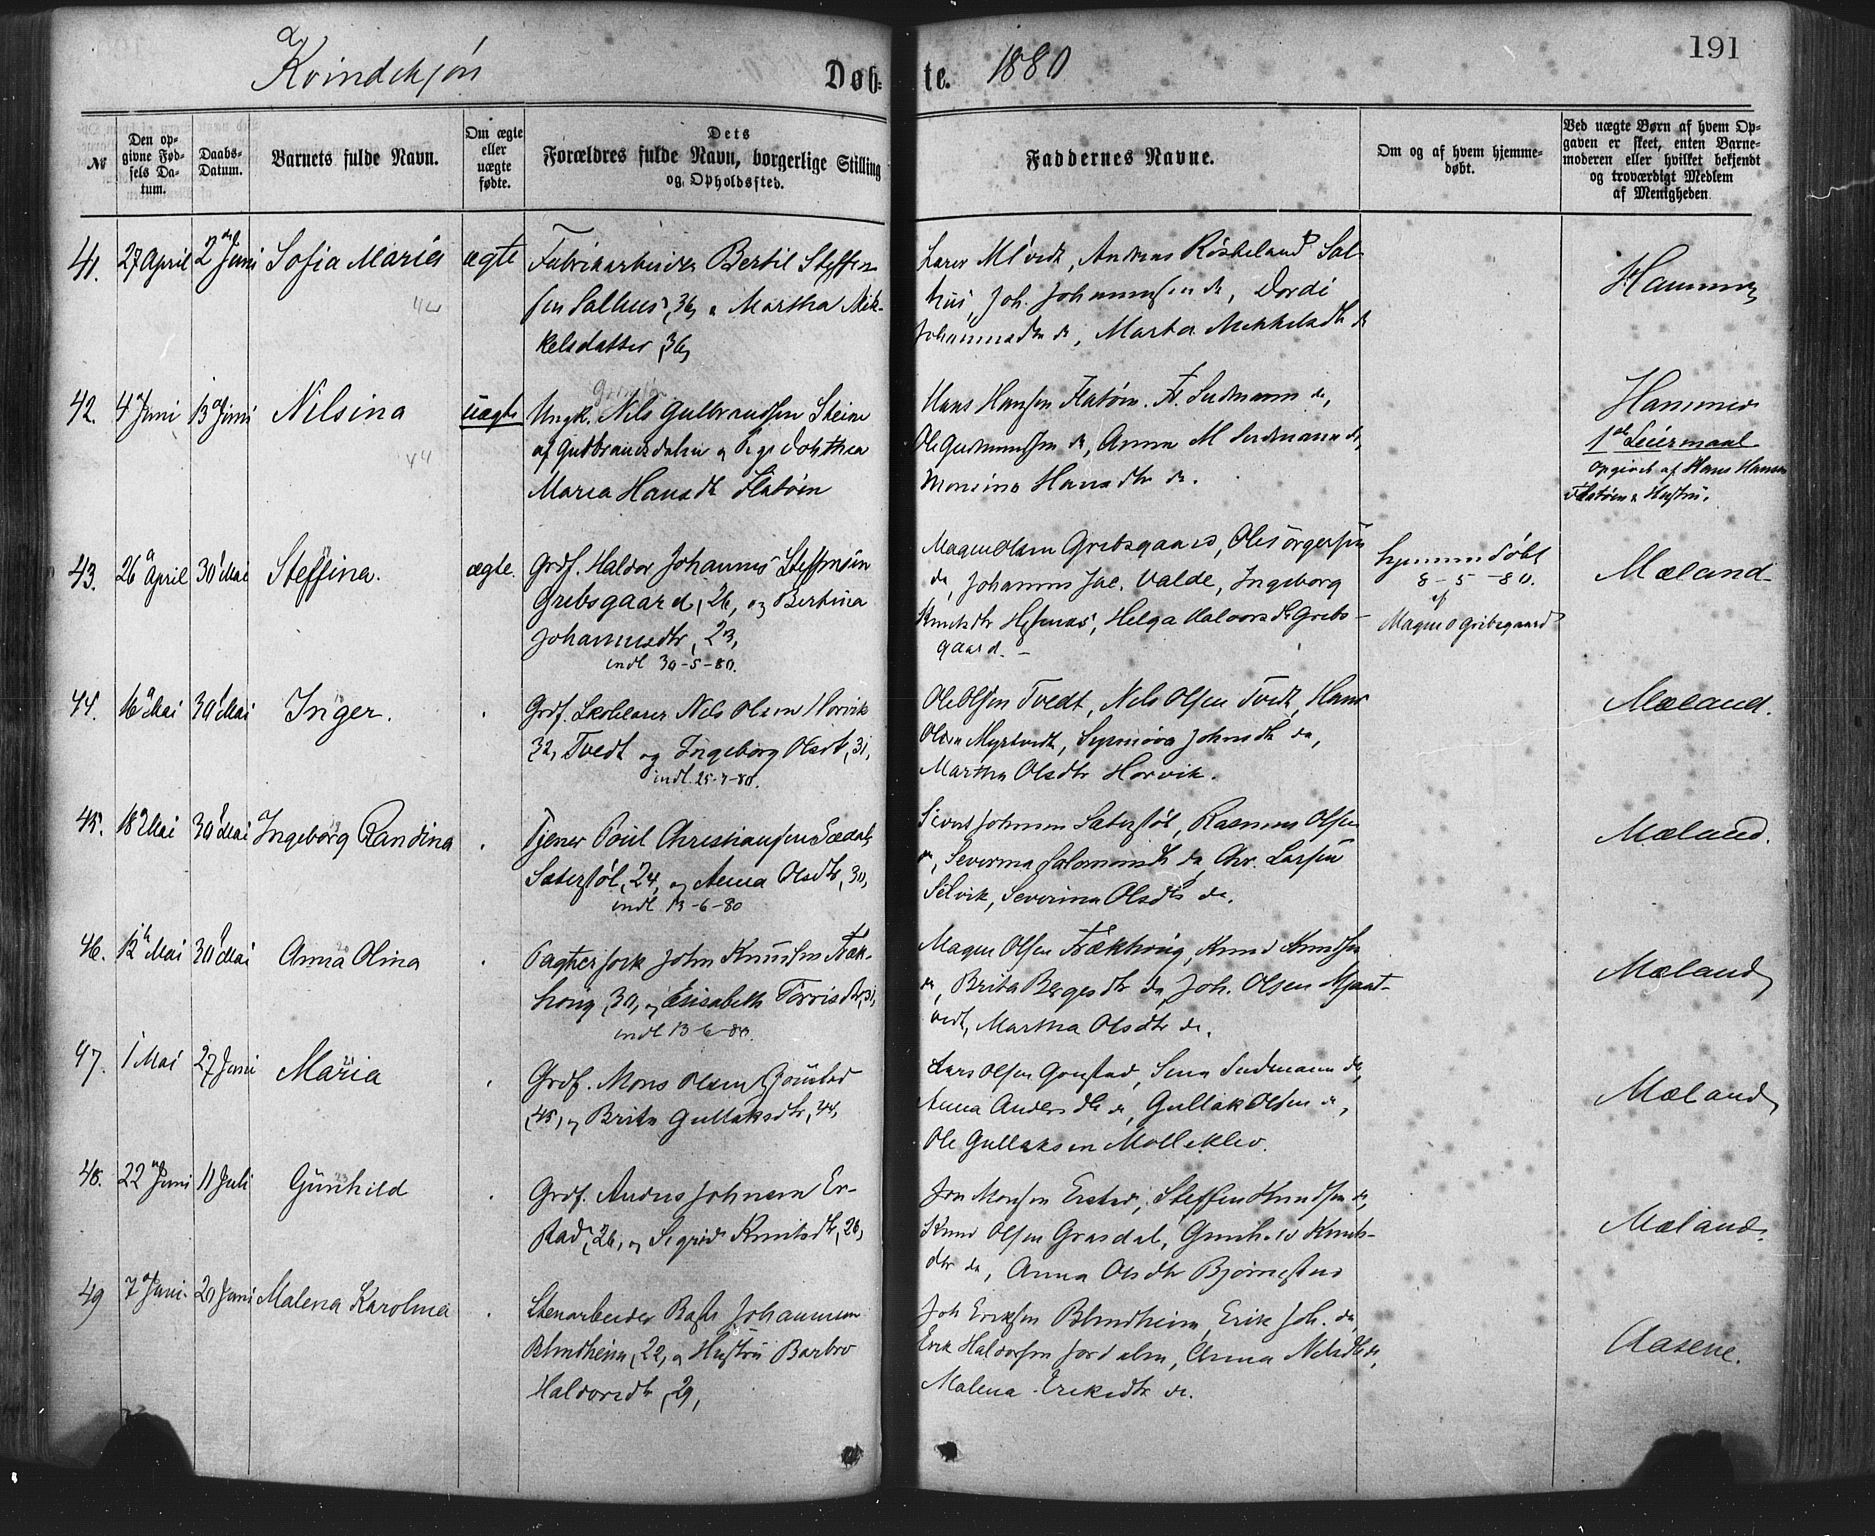 191
Kvindekjøn
Døb-
te. 1880
№
Den op-
givne Fød-
sels Da-
tum.
Daabs-
Datum.
Barnets fulde Navn.
Om ægte
eller
uægte
fødte.
Dets
Forældres fulde Navn, borgerlige Stilling
og Opholdssted.
Faddernes Navne.
Om og af hvem hjemme-
døbt.
Ved uægte Børn af hvem Op-
gaven er skeet, enten Barne-
moderen eller hvilket bekjendt
og troværdigt Medlem
af Menigheden.
41. 27 April 2 Juni Sofia Maria ægte
Fabrikarbeider Bertil Steffen-
sen Salhus, 36, & Martha Mik-
kelsdatter, 36,
Andreas Röskeland Sal-
hus, Joh. Johannessen do, Dordi
Johannesdtr do, Marta Mikkelsdtr do
Hammer
42. 4 Juni 13 Juni Nilsina uægte
44
Ungk. Nils Gulbrandsen Steine
af Gudbrandsdalen & Pige Dorthea
Maria Hansdtr Flatøen
Hans Hansen Flatøen. Sudmann do,
Ole Gudmundsen do, Anna M Sudmann do,
Monsine Hansdtr do.
Hammer
1ste Leiermaal
Opgivet af Hans Hansen
Flatøen & Hustru.
43. 26 April 30 Mai Steffina. ægte.
Grdf. Haldor Johannes Steffensen
Grebsgaard, 26, og Bertina
Johannesdtr, 23,
indl 30-5-80.
Magne Olsen Grebsgaard,
do, Johannes Jac. Valde, Ingeborg
Knutsdtr Helga Halvorsdtr Grebs-
gaard. -
hjemmedøbt
8-5-80.
af
Magne O Grebsgaard
Mæland
44. 16 Mai 30 Mai Inger.
Grdf. Nils Olsen Horvik
32, Tvedt og Ingeborg Olsdt, 31,
Ole Olsen Tvedt, Nils Olsen Tvedt, Hans
Olsen Myrtvedt, Synnöva Johnsdtr do,
Martha Olsdtr Horvik.
Mæland.
45. 18 Mai 30 Mai Ingeborg Randina
Tjener Poul Christiansen
Sæterstøl, 24, og Anna Olsdtr, 30,
indl 13-6-80
Sivert Johnsen Sæterstøl, Rasmus Olsen
do, Severina Salomonsdtr do, Chr. Larsen
Selvik, Severina Olsdtr do.
Mæland.
46. 12 Mai 30 Mai Anna Olina
20
John Knutsen Træk-
höug, 30, og Elisabeth Torrisdtr, 31,
indl 13-6-80.
Magne Olsen Trækhöug, Knud Knudsen
do, Brita Bergesdtr do, Joh. Olsen Mjaat-
vedt, Martha Olsdtr do.
Mæland
47. 1 Mai 27 Juni Maria
21
Grdf. Mons Olsen Gjönstad
45, og Brita Gullaksdtr, 44,
Lars Olsen Gonstad, Sina Sudmann do,
Anna Andersdtr do, Gullak Olsen do,
Ole Gullaksen Molleklev.
Mæland
48. 22 Juni 11 Juli Gunhild
23
Grdf. Anders Johnsen Er-
stad, 26, og Sigrid Knutsdtr, 26,
Jon Monsen Erstad, Steffen Knudsen do,
Knud Olsen Grasdal, Gunhild Knuts-
dtr do, Anna Olsdtr Bjørnestad
Mæland.
49 7 Juni 20 Juni Malena Karolina
Stenarbeider Johannesen
Blindheim, 22, og Hustru Barbro
Haldorsdtr, 29,
Joh Eriksen Blindheim, Erik Joh. do,
Erik Haldorsen Jordalen, Anna Nilsdtr do,
Malena Eriksdtr do.
Aasene.